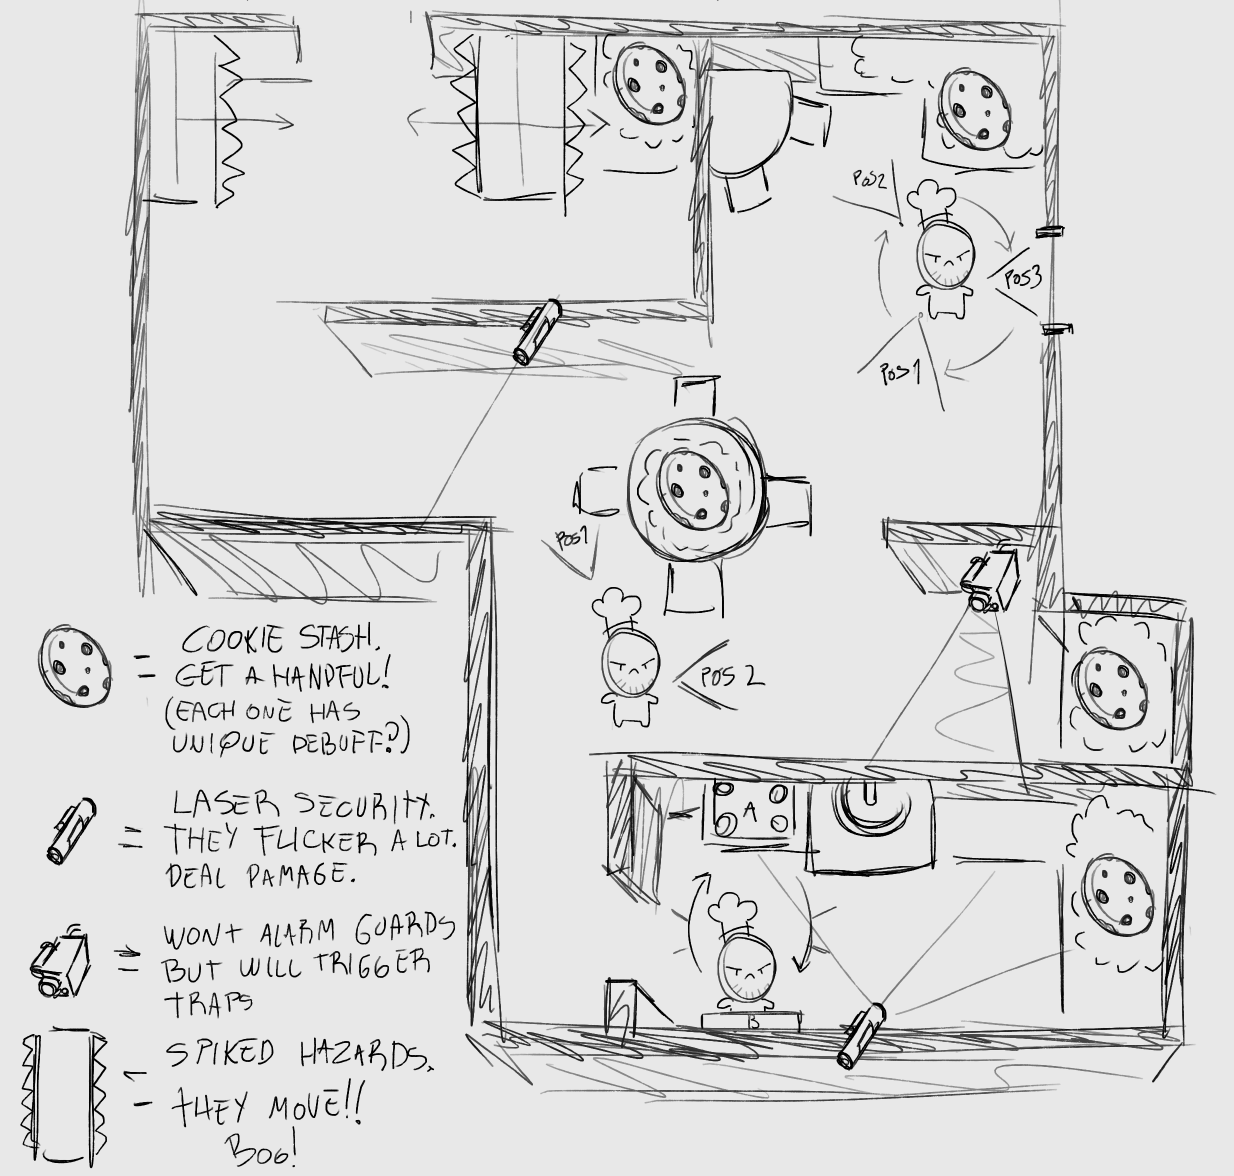 POS2
POS3
POS1
POS1
POS 2
A
B
COOKIE STASH.
= GET A HANDFUL!
(EACH ONE HAS
UNIQUE DEBUFF?)
LASER SECURITY.
= THEY FLICKER A LOT.
DEAL DAMAGE.
WONT ALARM GUARDS
= BUT WILL TRIGGER
TRAPS
SPIKED HAZARDS.
= THEY MOVE!!
BOG!